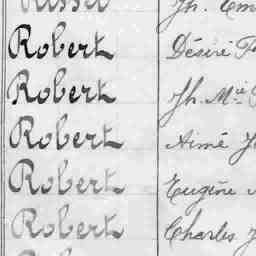 Robert Désiré
Robert Jh. Mie
Robert Aimé
Robert Eugène
Robert Charles